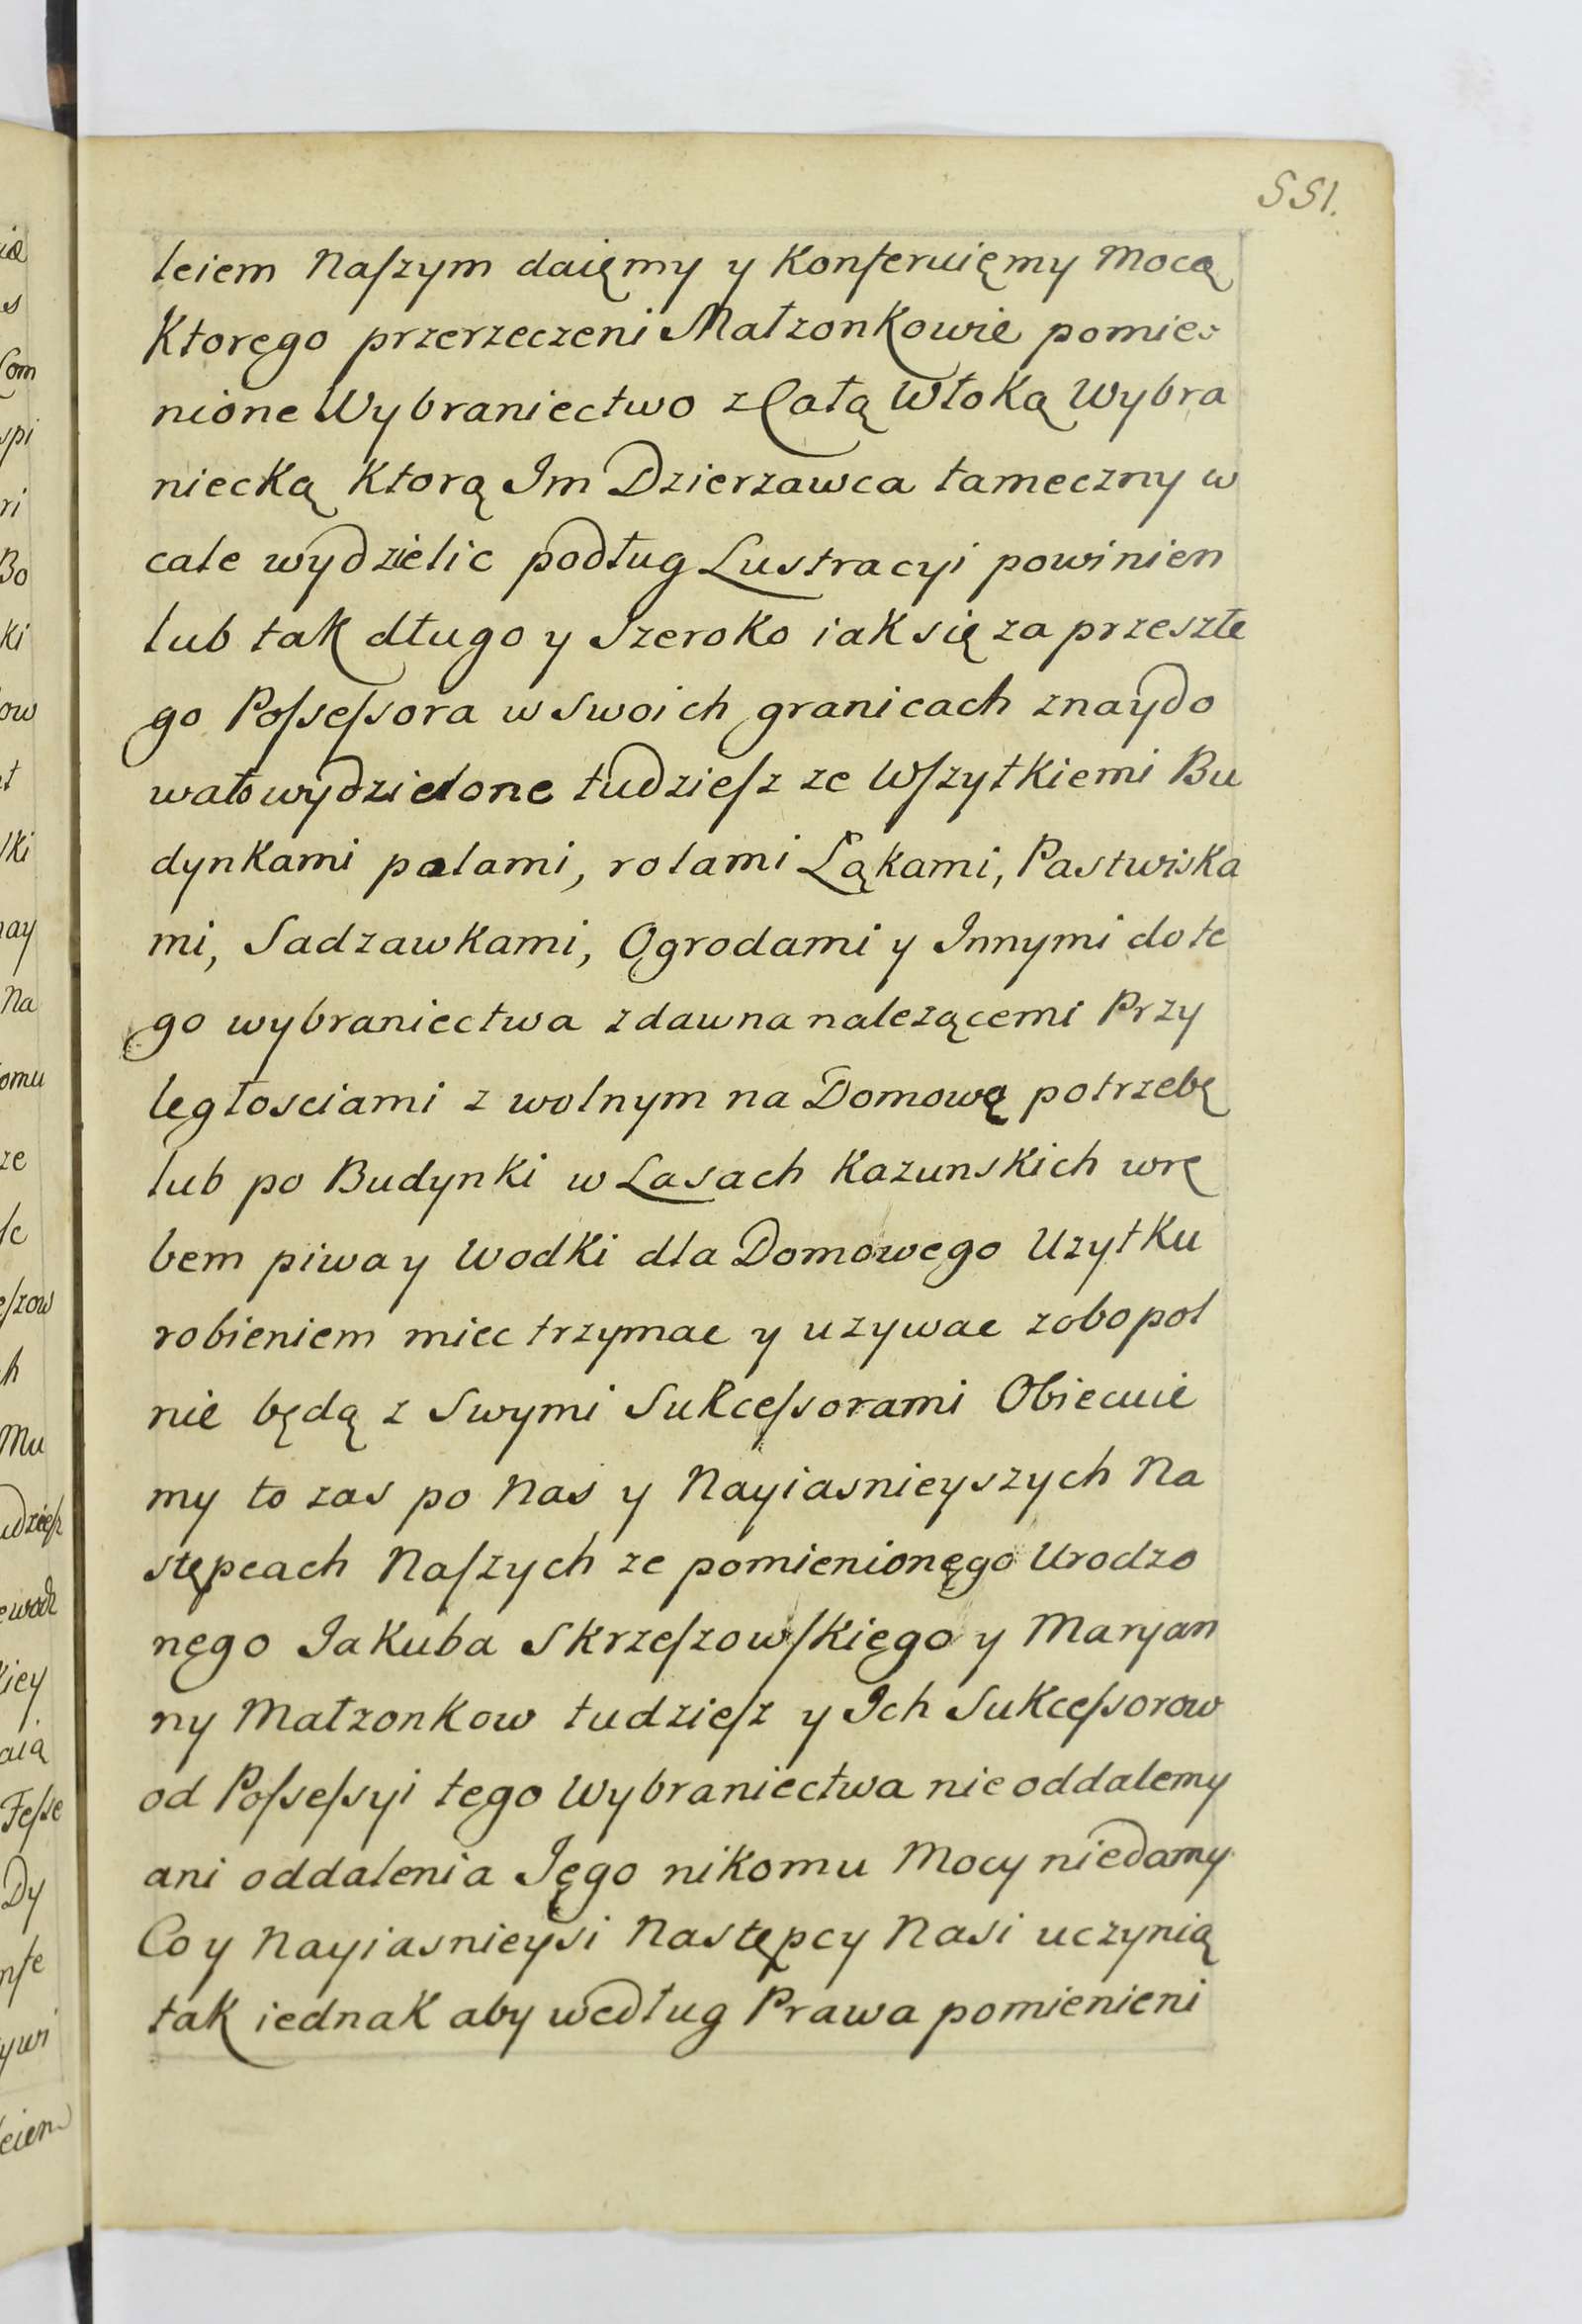 551.
leiem Naſzym daięmy y Konferuięmy Mocą
Ktorego przerzeczeni Małzonkowie pomie
nione Wybraniectwo z Całą Włoką Wybra
niecką Ktorą Im Dzierzawca tameczny w
cale wydzielic podług Lustracyi powinien
lub tak długo y Szeroko iak się za przeszłe
go Poſseſsora w Swoich granicach znaydo
wało wydzielone tudzieſz ze Wſzytkiemi Bu
dynkami polami, rolami Łąkami, Pastwiska
mi, Sadzawkami, Ogrodami y Innymi do te
go wybraniectwa zdawna nalezącemi Przy
ległosciami z wolnym na Domową potrzebę
lub po Budynki w Lasach Kazunskich wrę
bem piwa y Wodki dla Domowego Uzytku
robieniem miec trzymac y uzywac zobopol
nie będą z Swymi Sukceſsorami Obiecuie
my to zas po Nas y Nayiasnieyszych Na
stępcach Naſzych ze pomienionęgo Urodzo
nęgo Jakuba Skrzeſzowſkięgo y Maryan
ny Małzonkow tudzieſz y Ich Sukceſsorow
od Poſseſsyi tego Wybraniectwa nie oddalemy
ani oddalenia Jęgo nikomu Mocy niedamy
Co y Nayiasnieysi Następcy Nasi uczynią
tak iednak aby według Prawa pomienieni